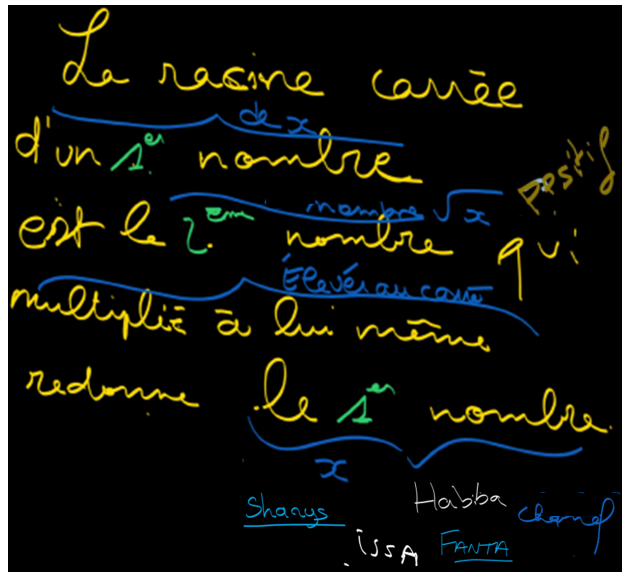 La racine carrée
de x
d'un 1er nombre
positif
nombre √x
est le 2eme nombre qui
Élevés au carré
multiplié à lui même
redonne le 1er nombre.
x
Sharys Habiba
ISSA FANTA